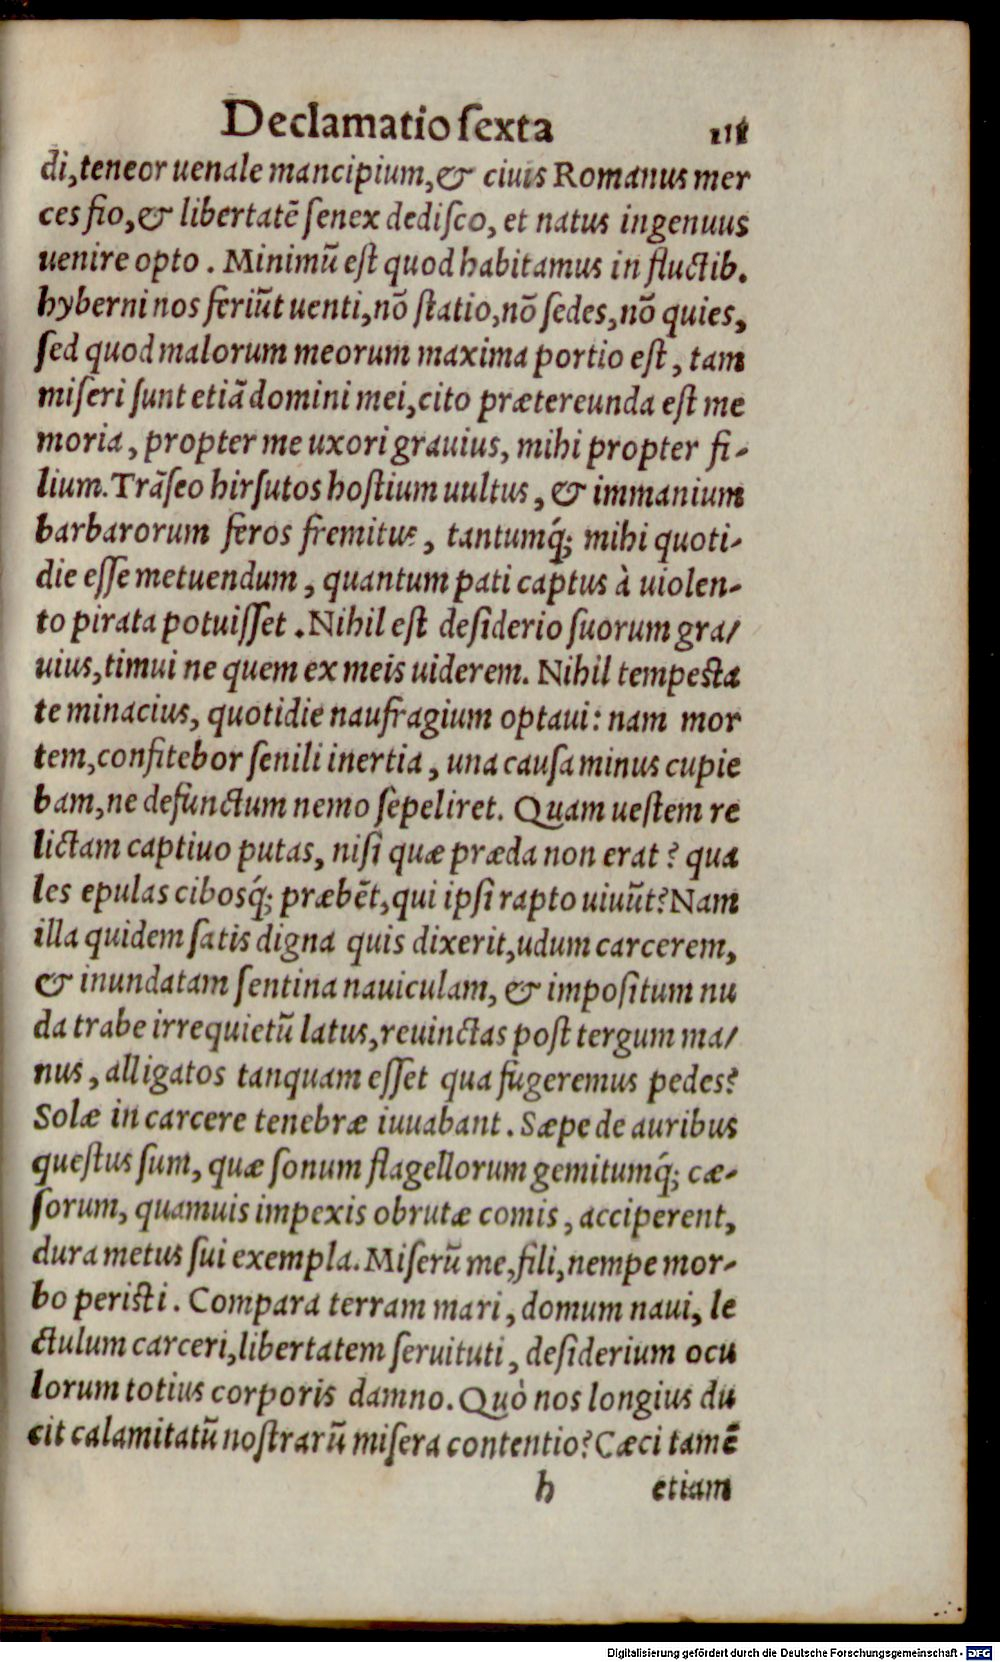 Declamatio ſexta
di, teneor uenale mancipium, & ciuis Romanus mer
ces fio, & libertatē ſenex dediſco, et natus ingenuus
uenire opto. Minimū eſt quod habitamus in fluctib.
hyberni nos feriūt uenti, nō ſtatio, nō ſedes, nō quies,
ſed quod malorum meorum maxima portio eſt, tam
miſeri ſunt etiā domini mei, cito prætereunda eſt me
moria, propter me uxori grauius, mihi propter fi-
lium. Trāſeo hirſutos hoſtium uultus, & immanium
barbarorum feros fremitus, tantumq́; mihi quoti-
die eſſe metuendum, quantum pati captus à uiolen-
to pirata potuiſſet. Nihil eſt deſiderio ſuorum gra/
uius, timui ne quem ex meis uiderem. Nihil tempeſta
te minacius, quotidie naufragium optaui: nam mor
tem, confitebor ſenili inertia, una cauſa minus cupie
bam, ne defunctum nemo ſepeliret. Quam ueſtem re
lictam captiuo putas, niſi quæ præda non erat? qua
les epulas cibosq́; præbēt, qui ipſi rapto uiuūt? Nam
illa quidem ſatis digna quis dixerit, udum carcerem,
& inundatam ſentina nauiculam, & impoſitum nu
da trabe irrequietū latus, reuinctas poſt tergum ma/
nus, alligatos tanquam eſſet qua fugeremus pedes?
Solæ in carcere tenebræ iuuabant. Sæpe de auribus
queſtus ſum, quæ ſonum flagellorum gemitumq́; cæ-
ſorum, quamuis impexis obrutæ comis, acciperent,
dura metus ſui exempla. Miſerū me, fili, nempe mor-
bo periſti. Compara terram mari, domum naui, le
ctulum carceri, libertatem ſeruituti, deſiderium ocu
lorum totius corporis damno. Quò nos longius du
cit calamitatū noſtrarū miſera contentio? Cæci tamē
h etiam
Digitalisierung gefördert durch die Deutsche Forschungsgemeinschaft - DFG